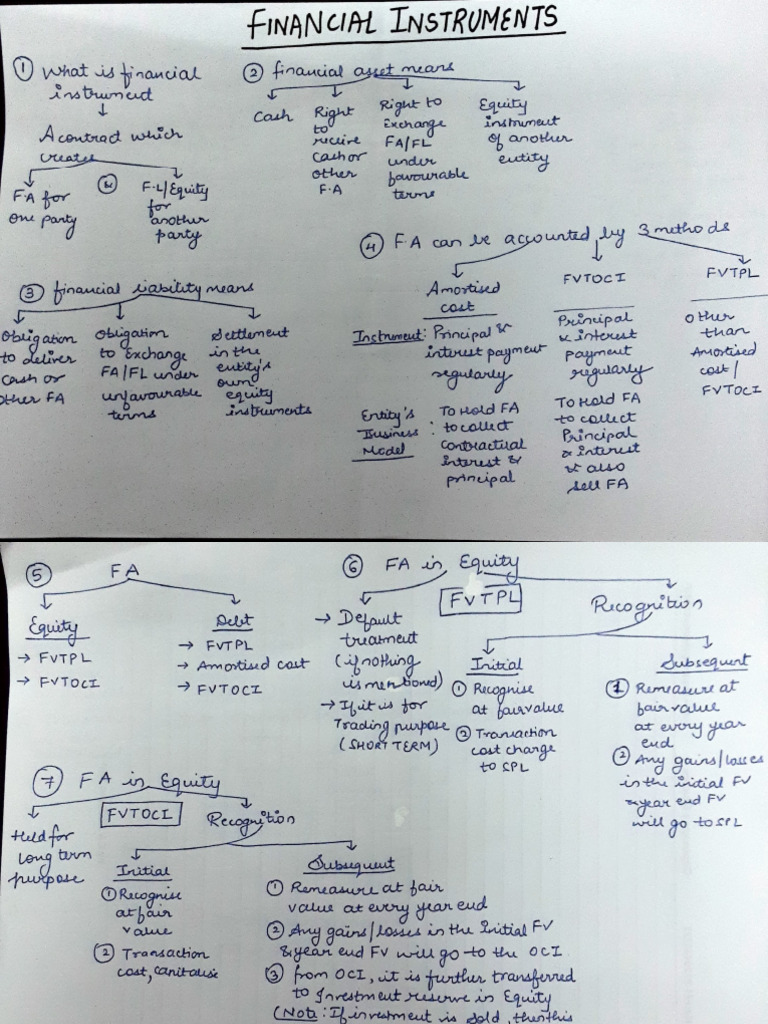 FINANCIAL INSTRUMENTS
① What is financial
instrument
A contract which
creates
FA for
one party
F.L/Equity
for
another
party
② financial asset means
Cash
Right
to
receive
cash or
other
F.A
Right to
Exchange
FA/FL
under
favourable
terms
Equity
instrument
of another
entity
③ financial liability means
Obligation
to deliver
cash or
other FA
Obligation
to Exchange
FA/FL under
unfavourable
terms
Settlement
in the
entity's
own
equity
instruments
④ F.A can be accounted by 3 methods
Amortised
cost
FVTOCI
FVTPL
Instrument: Principal &
interest payment
regularly
Principal
& interest
payment
regularly
other
than
Amortised
cost/
FVTOCI
Entity's
Business :
Model
To Hold FA
to collect
Contractual
interest &
principal
To Hold FA
to collect
Principal
& interest
& also
sell FA
⑤ FA
Equity
→ FVTPL
→ FVTOCI
Debt
→ FVTPL
→ Amortised cost
→ FVTOCI
⑥ FA in Equity
FVTPL
→ Default
treatment
(if nothing
is mentioned)
→ If it is for
Trading purpose
(SHORT TERM)
Recognition
Initial
① Recognise
at fair value
② Transaction
cost charge
to SPL
Subsequent
① Remeasure at
fair value
at every year
end
② Any gains/losses
in the initial FV
& year end FV
will go to SPL
⑦ FA in Equity
FVTOCI
Held for
long term
purpose
Recognition
Initial
① Recognise
at fair
value
② Transaction
cost, capitalise
Subsequent
① Remeasure at fair
value at every year end
② Any gains/losses in the Initial FV
& year end FV will go to the OCI
③ from OCI, it is further transferred
to Investment reserve in Equity
(Note: If investment is sold, then this